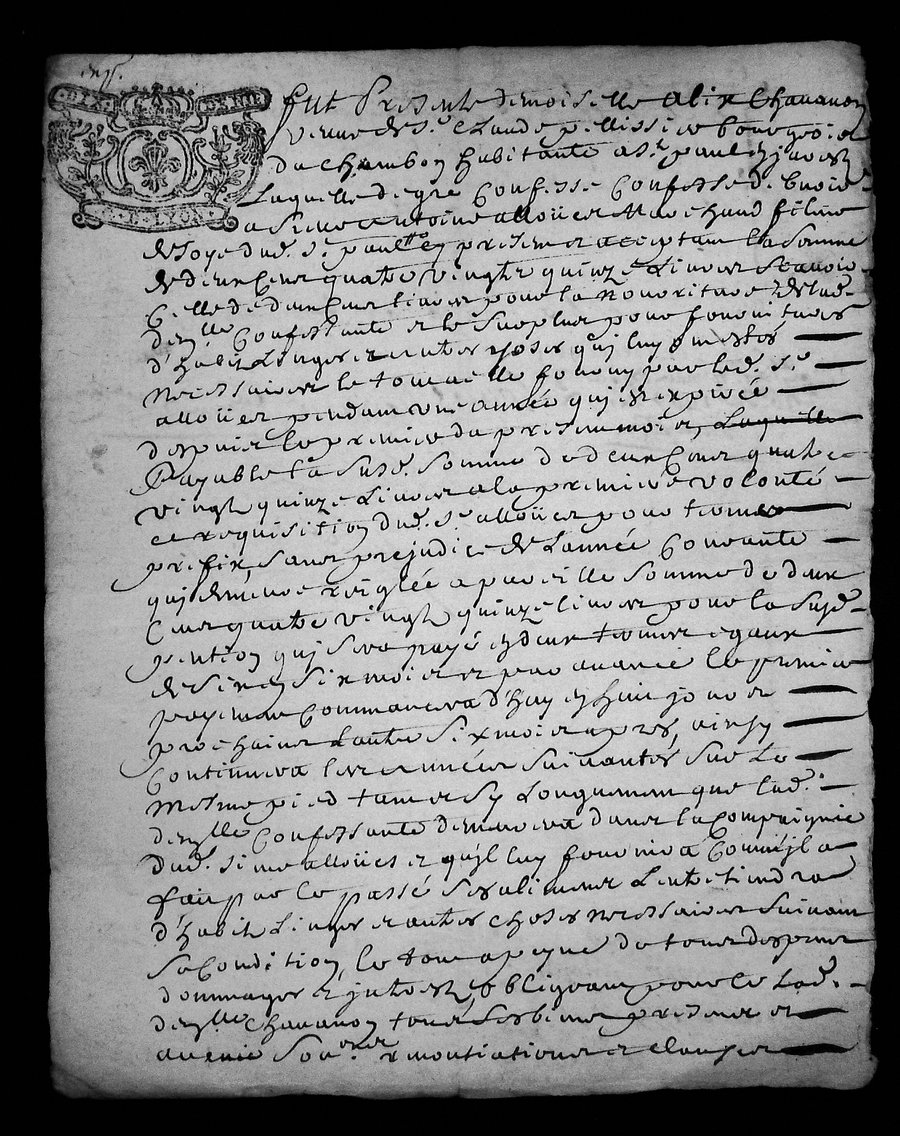 DIX DENIE
G. D. LYON
fut Presente demoiselle alix Chavanon
veuve de Sr. Claude pellissier bourgeois
du Chambon habitante a St. paul en jarest
Laquelle de gré Confesse Confesse debvoir
a Sieur Antoine alloüer Marchand filleur
de Soye dud. St. paul icy present et acceptant la Somme
de deux Cent quatre vingts quinze Livres Scavoir
Celle de deux Cent livres pour la nourriture de lad.
dem.lle Confessante et le Surplus pour fournitures
d'habit Linges et autres choses qui luy ont estés
necessaires le tout a elle fourny par led. Sr.
alloüer pendant une année qui est expirée
despuis le premier du present mois, Laquelle
Payable la Susd. Somme de deux Cent quatre
vingt quinze Livres a la premiere volonté
et requisition dud. Sr. alloüer pour terme
prefix, Sans prejudice de Lannée Courante
qui demeure reiglée a pareille Somme de deux
Cent quatre vingt quinze livres pour la Susd.
pention qui Sera payé en deux termes egaux
de Six en Six mois et par avance le premier
payement Commencera d'huy en huit jours
prochains Lautre Six mois apres, ainsy
Continuera les années Suivantes Sur le
mesme pied tant et Sy Longuement que lad.
dem.lle Confessante demeurera dans la Compaignie
dud. Sieur alloües et qu'jl luy fournira Comm'jl a
fait par le passé Ses alimens Lentretiendra
d'habit Linges et autres choses necessaires Suivant
Sa Condition, le tout a peyne de tous despens
dommages et jnterest, obligeant pour ce lad.
dem.lle Chavanon tous Ses biens presens et
avenir Soumns. renontiations et clauses